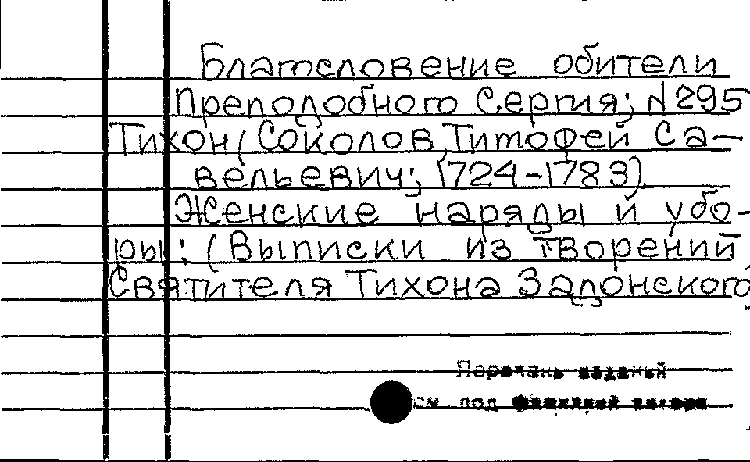 Благословение обители
Преподобного Сергия; N 295
Тихон (Соколов Тимофей Са-
вельевич; 1724-1783)
Женские наряды и убо-
ры: (Выписки из творений
Святителя Тихона Задонского
Перечень изданий
см. под